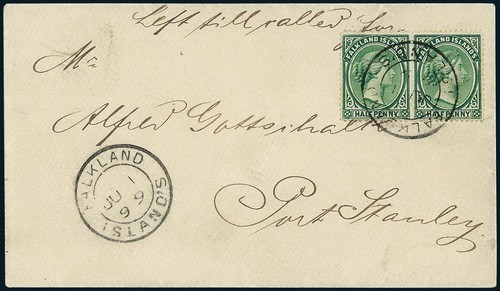 Left till called for
Mr
Alfred Gottschalk
Port Stanley
FALKLAND ISLANDS
HALF PENNY
FALKLAND ISLANDS
HALF PENNY
FALKLAND
JU 1
99
ISLAND'S